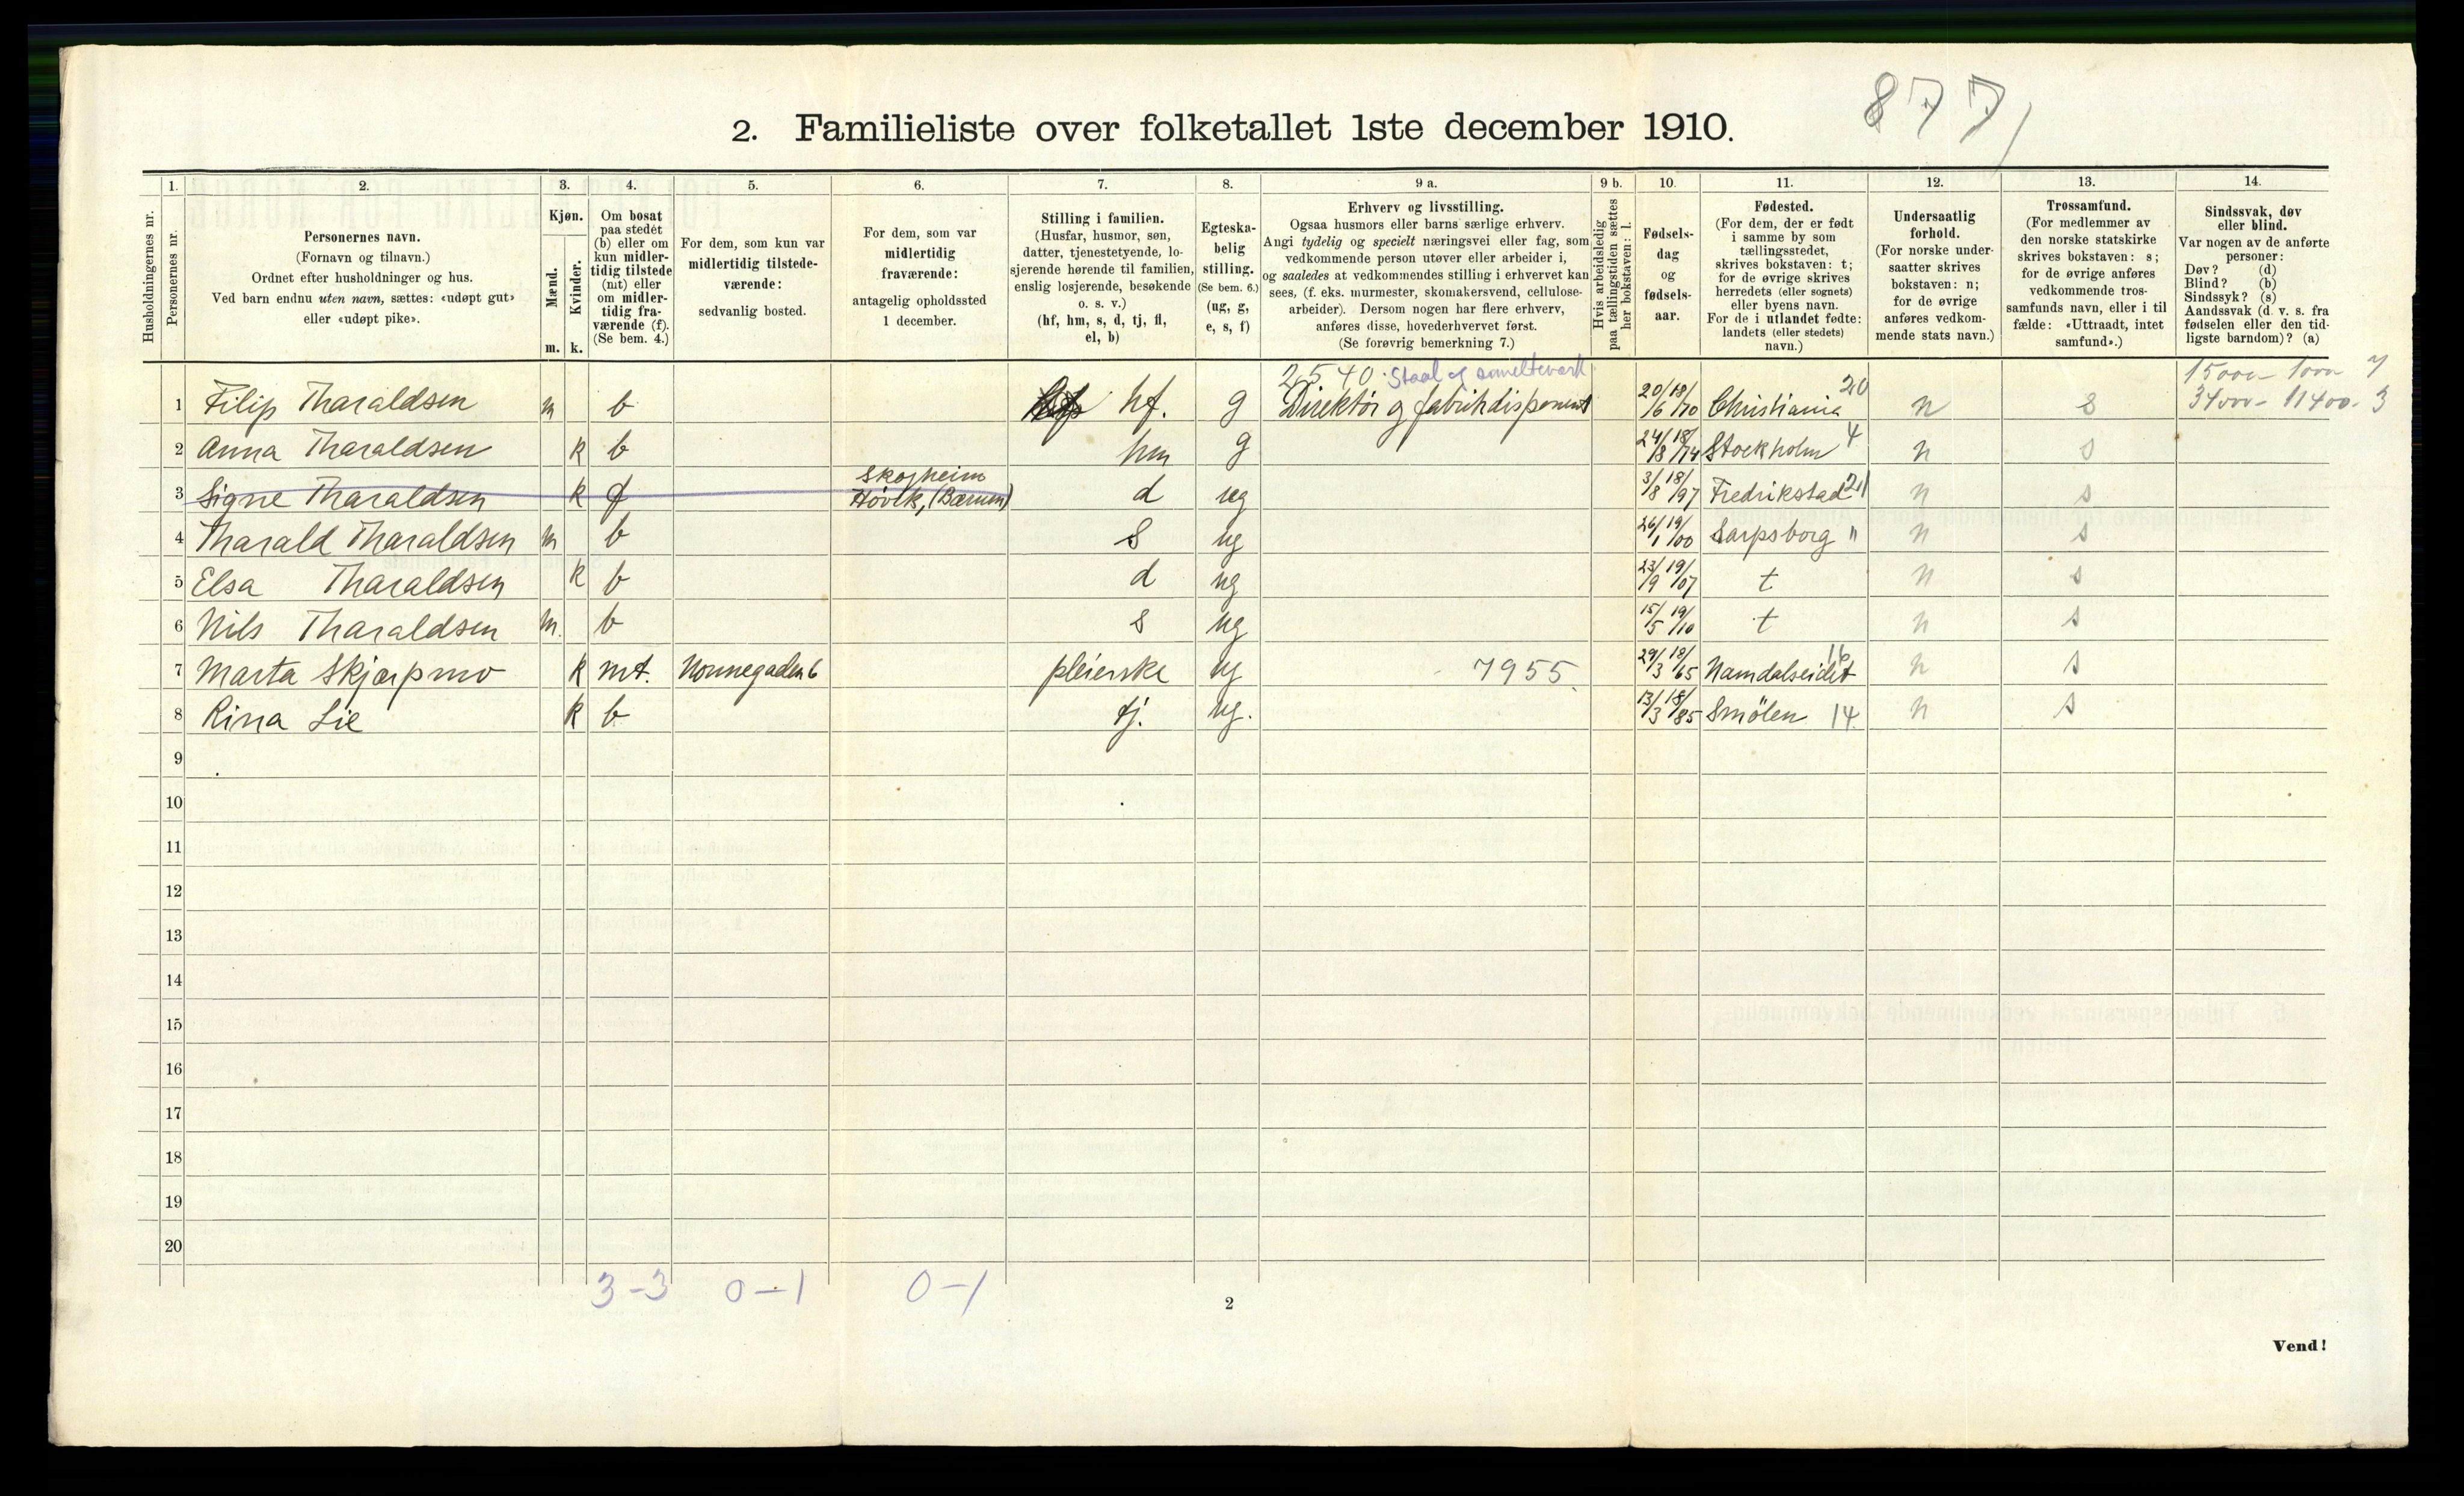 877/
2. Familieliste over folketallet 1ste december 1910.
Husholdningernes nr.
1. Personernes nr.
2. Personernes navn.
(Fornavn og tilnavn.)
Ordnet efter husholdninger og hus.
Ved barn endnu uten navn, sættes: «udøpt gut»
eller «udøpt pike».
3. Kjøn.
Mænd. m.
Kvinder. k.
4. Om bosat
paa stedet
(b) eller om
kun midler-
tidig tilstede
(mt) eller
om midler-
tidig fra-
værende (f).
(Se bem. 4.)
5. For dem, som kun var
midlertidig tilstede-
værende:
sedvanlig bosted.
6. For dem, som var
midlertidig
fraværende:
antagelig opholdssted
1 december.
7. Stilling i familien.
(Husfar, husmor, søn,
datter, tjenestetyende, lo-
sjerende hørende til familien,
enslig losjerende, besøkende
o. s. v.)
(hf, hm, s, d, tj, fl,
el, b)
8. Egteska-
belig
stilling.
(Se bem. 6.)
(ug, g,
e, s, f)
9 a. Erhverv og livsstilling.
Ogsaa husmors eller barns særlige erhverv.
Angi tydelig og specielt næringsvei eller fag, som
vedkommende person utøver eller arbeider i,
og saaledes at vedkommendes stilling i erhvervet kan
sees, (f. eks. murmester, skomakersvend, cellulose-
arbeider). Dersom nogen har flere erhverv,
anføres disse, hovederhvervet først.
(Se forøvrig bemerkning 7.)
9 b. Hvis arbeidsledig
paa tællingstiden sættes
her bokstaven: l.
10. Fødsels-
dag
og
fødsels-
aar.
11. Fødested.
(For dem, der er født
i samme by som
tællingsstedet,
skrives bokstaven: t;
for de øvrige skrives
herredets (eller sognets)
eller byens navn.
For de i utlandet fødte:
landets (eller stedets)
navn.)
12. Undersaatlig
forhold.
(For norske under-
saatter skrives
bokstaven: n;
for de øvrige
anføres vedkom-
mende stats navn.)
13. Trossamfund.
(For medlemmer av
den norske statskirke
skrives bokstaven: s;
for de øvrige anføres
vedkommende tros-
samfunds navn, eller i til
fælde: «Uttraadt, intet
samfund».)
14. Sindssvak, døv
eller blind.
Var nogen av de anførte
personer:
Døv? (d)
Blind? (b)
Sindssyk? (s)
Aandssvak (d. v. s. fra
fødselen eller den tid-
ligste barndom)? (a)
2540. Staal og smelteverk 15000 - 1000 7
1 Filip Tharaldsen m b hf. g Direktör og fabrikdisponent 20/6 18/70 Christiania 20 n s 34000 - 11400 - 3
2 Anna Tharaldsen k b hm g 24/8 18/74 Stockholm 4 n s
Skogheim
3 Signe Tharaldsen k f Hövik, (Bærum) d ug 3/8 18/97 Fredrikstad 21 n s
4 Tharald Tharaldsen m b s ug 26/1 19/00 Sarpsborg " n s
5 Elsa Tharaldsen k b d ug 23/9 19/07 t n s
6 Nils Tharaldsen m. b s ug 15/5 19/10 t n s
7 Marta Skjærpmo k mt. Nonnegaden 6 pleierske ug 7955. 29/3 18/65 Namdalseidet 16 n s
8 Rina Lie k b tj. ug. 13/3 18/85 Smölen 14. n s
9
10
11
12
13
14
15
16
17
18
19
20
3-3 0-1 0-1
2
Vend!